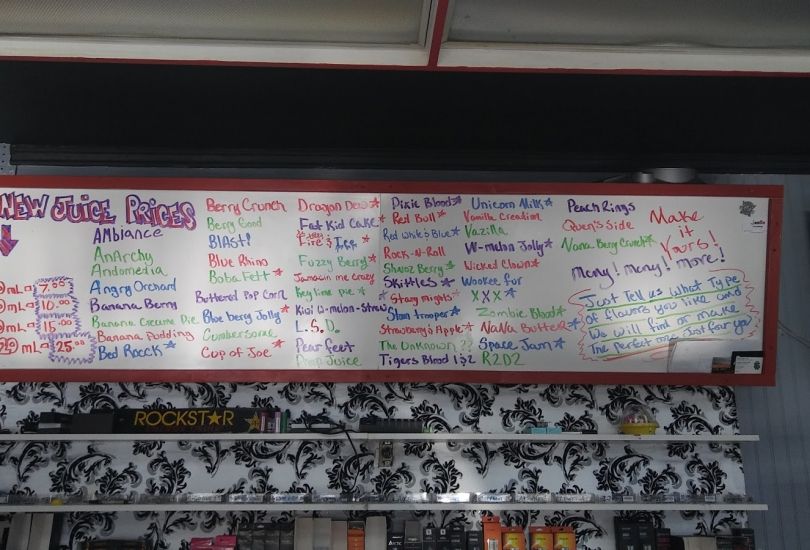 NEW JUICE PRICES
mL = 7.00
mL = 10.00
mL = 15.00
mL = 25.00
AMbiance
AnArchy
Andomedia
Angry Orchard
Banana Berry
Banana Creame Pie
Banana Pudding
Bed Rock *
Berry Crunch
Berry Good
BLAST!
Blue Rhino
Boba Fett *
Buttered Pop Corn
Blue berry Jolly *
Cumbersome
Cup of Joe *
Dragon Dew *
Fat Kid Cake *
Fire & Ice *
Fuzzy Berry *
Jamacin me Crazy
Key lime pie *
Kiwi W-melon-Straw
L.S.D.
Pear feet
Juice
Dixie Blood *
Red Bull *
Red White & Blue *
Rock-N-Roll
Berry *
Skittles *
Starry Nights *
Storm trooper *
Strawberry & Apple *
The Unknown ??
Tigers Blood 1 & 2
Unicorn Milk *
Vanilla Creation
Vazilla
W-melon Jolly *
Wicked Clown *
Wookee fur
XXX *
Zombie Blood *
NaNa Butter *
Space Jam *
R2D2
Peach Rings
Quen's Side
Nana Berry Crunch *
Make
it
Yours!
Many! many! more!
Just Tell us What Type
of flavors you like and
We will find or make
The perfect one Just for ya
ROCKSTAR